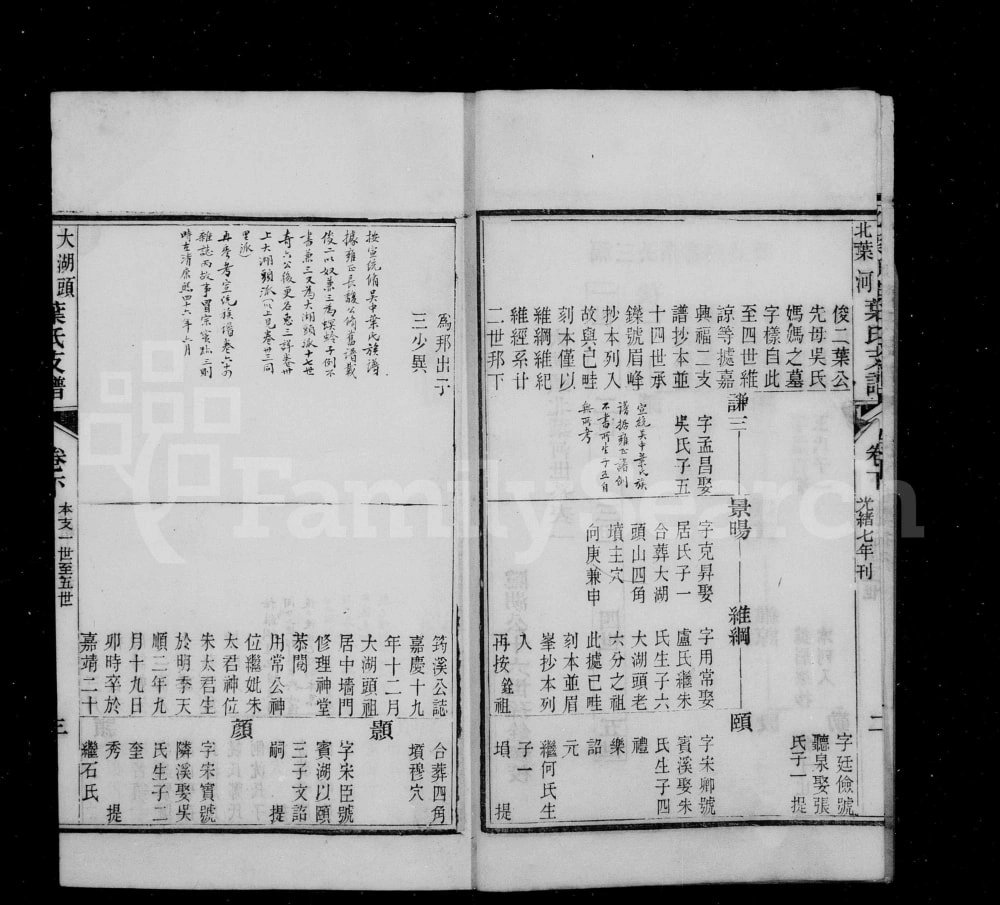 北葉河葉氏支譜
卷下
光緒七年刊
二
俊二葉公
先母吳氏
媽媽之墓
字樣自此
至四世維
諒等據嘉
興福二支
譜抄本並
十四世承
鑅號眉峰
抄本列入
故與已畦
刻本僅以
維綱維紀
維經系计
二世邦下
謙三
字孟昌娶
吳氏子五
宣統吳中葉氏族
譜據雍正譜例
不書所生子五自
無可考
景暘
字克昇娶
居氏子一
合葬大湖
頭山四角
墳主穴
向庚兼申
維綱
字用常娶
盧氏繼朱
氏生子六
大湖頭老
六分之祖
此據已畦
刻本並眉
峯抄本列
入
再按銓祖
字廷儉號
聽泉娶張
氏子一提
頤
字宋卿號
賓溪娶朱
氏生子四
禮
樂
詔
元
繼何氏生
子一
塤 提
為邦出子
三少異
按宣統脩吳中葉氏族譜
據雍正長馥公脩舊譜載
俊二以奴兼三為螟蛉子例不
書兼三又為大湖頭派十一世
奇六公後更名惠三詳卷卅
上大湖頭派(以上見卷卅三同
里派)
再參考宣統族譜卷六十四
雜誌內故事冒宗實跡三則
時在清康熙四十六年二月
筠溪公誌
嘉慶十九
年十二月
大湖頭祖
居中墻門
修理神堂
恭閱
用常公神
位繼妣朱
太君神位
朱太君生
於明季天
順三年九
月十九日
卯時卒於
嘉靖二十
合葬四角
墳穆穴
顥
字宋臣號
賓湖以頤
三子文詔
嗣 提
顔
字宋賓號
隣溪娶吳
氏生子二
奎
秀 提
繼石氏
大湖頭葉氏支譜
卷下
本支一世至五世
三
FamilySearch